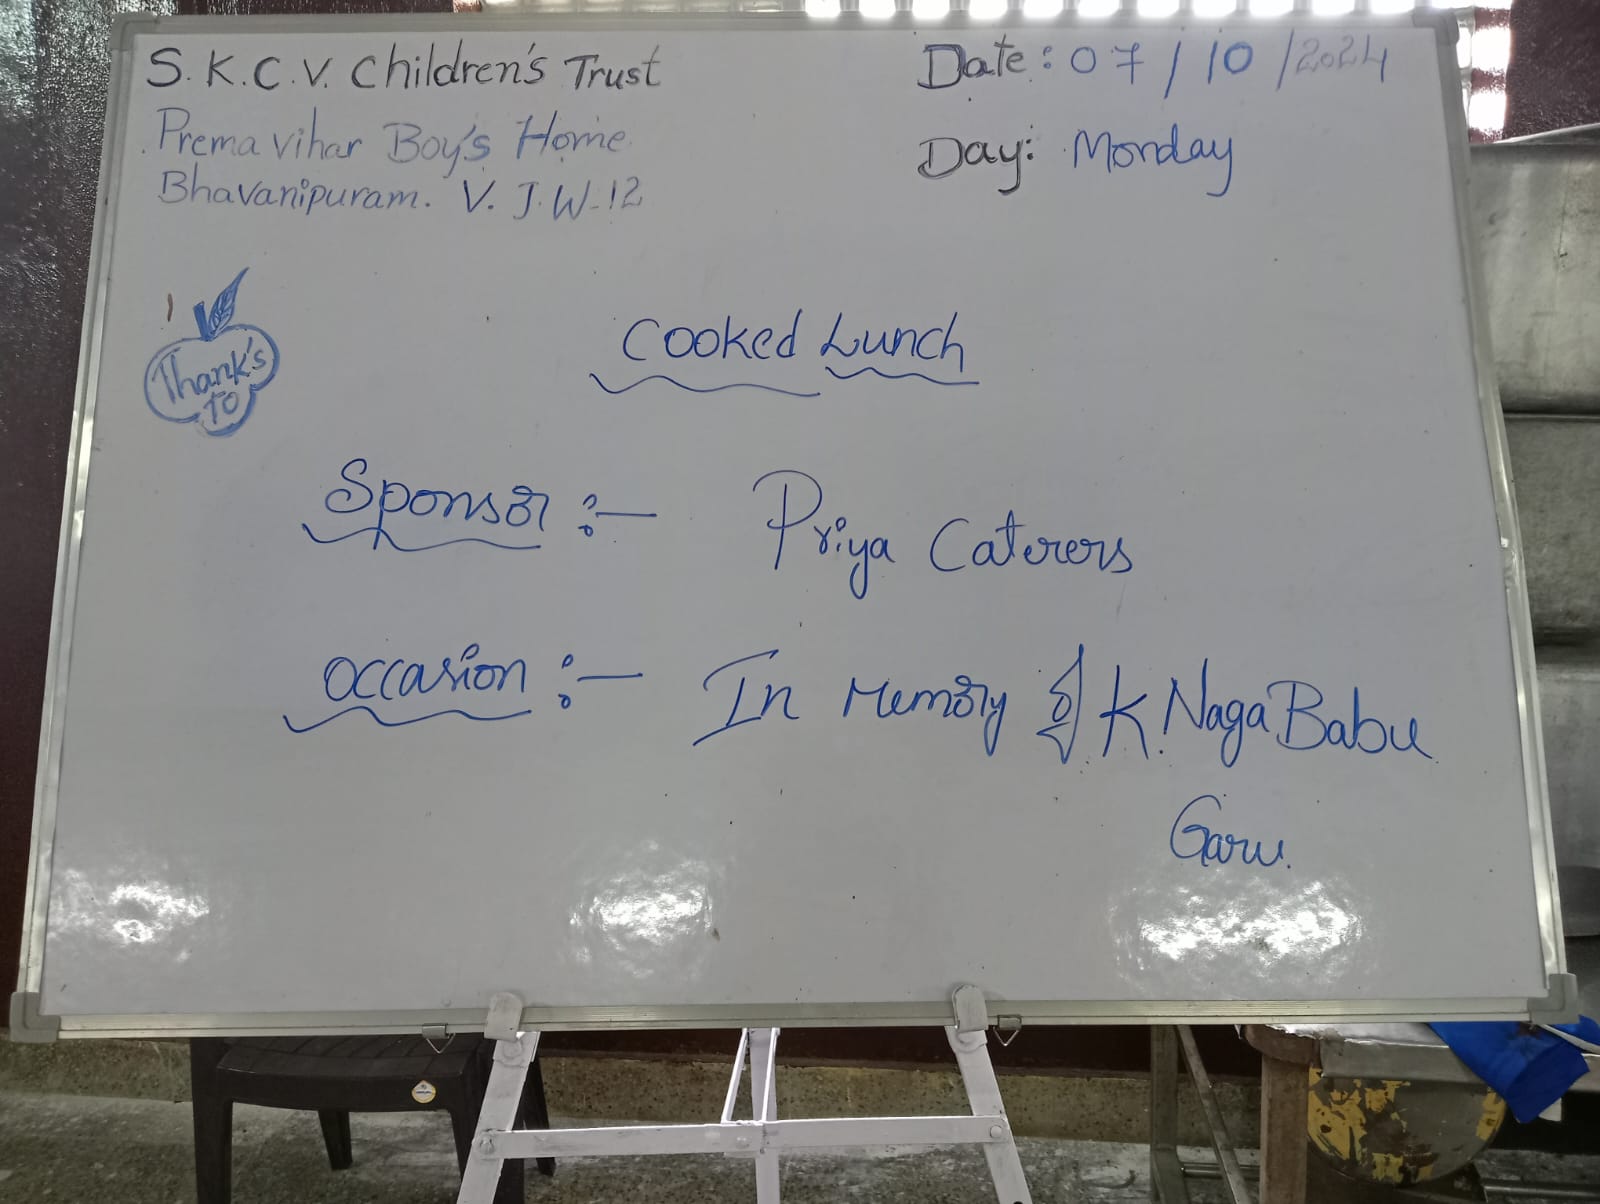 S.K.C.V. Children's Trust
Prema vihar Boy's Home
Bhavanipuram. V.J.W-12
Date: 07/10/2024
Day: Monday
Thank's
To
Cooked Lunch
Sponsor :-
Priya Caterers
Occasion :-
In Memory of K. Naga Babu
Garu.